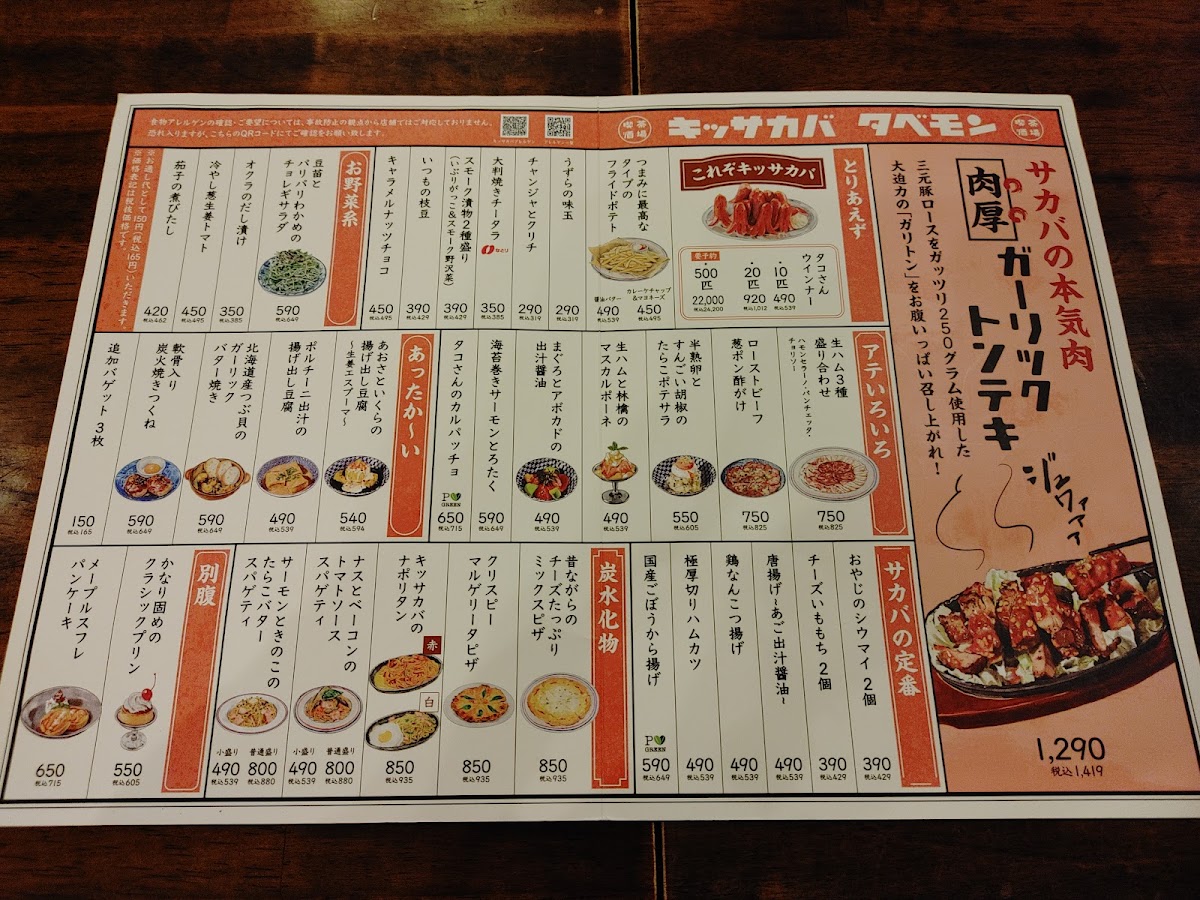 食物アレルゲンの確認・ご要望については、事故防止の観点から店舗ではご対応しておりません。
恐れ入りますが、こちらのQRコードにてご確認をお願い致します。
喫茶酒場
キッサカバ タベモン
喫茶酒場
サカバの本気肉
肉厚
ガーリック
トンテキ
三元豚ロースをガッツリ250グラム使用した
大迫力の「ガリトン」をお腹いっぱい召し上がれ!
ジュワァァァ
1,290
税込1,419
とりあえず
これぞキッサカバ
タコさん
ウインナー
・10匹
490
税込539
・20匹
920
税込1,012
要予約
・500匹
22,000
税込24,200
つまみに最高な
タイプの
フライドポテト
カレーケチャップ
&マヨネーズ
450
税込495
醤油バター
490
税込539
うずらの味玉
290
税込319
チャンジャとクリチ
290
税込319
大判焼きチータラ
なとり
350
税込385
スモーク漬物2種盛り
(いぶりがっこ&スモーク野沢菜)
390
税込429
いつもの枝豆
390
税込429
キャラメルナッツチョコ
450
税込495
お野菜系
豆苗と
パリパリわかめの
チョレギサラダ
590
税込649
オクラのだし漬け
350
税込385
冷やし葱生姜トマト
450
税込495
茄子の煮びたし
420
税込462
※お通し代として150円(税込165円)いただきます。
※価格表記は税抜価格です。
アテいろいろ
生ハム3種
盛り合わせ
ハモンセラーノ・パンチェッタ・
チョリソー
750
税込825
ローストビーフ
葱ポン酢がけ
750
税込825
半熟卵と
すんごい胡椒の
たらこポテサラ
550
税込605
生ハムと林檎の
マスカルポーネ
490
税込539
まぐろとアボカドの
出汁醤油
490
税込539
海苔巻きサーモンとろたく
590
税込649
タコさんのカルパッチョ
P GREEN
650
税込715
あったか〜い
あおさといくらの
揚げ出し豆腐
〜生姜エスプーマ〜
540
税込594
ポルチーニ出汁の
揚げ出し豆腐
490
税込539
北海道産つぶ貝の
ガーリック
バター焼き
590
税込649
軟骨入り
炭火焼きつくね
590
税込649
追加バゲット3枚
150
税込165
サカバの定番
おやじのシウマイ2個
390
税込429
チーズいももち2個
390
税込429
唐揚げ〜あご出汁醤油〜
490
税込539
鶏なんこつ揚げ
490
税込539
極厚切りハムカツ
490
税込539
国産ごぼうから揚げ
P GREEN
590
税込649
炭水化物
昔ながらの
チーズたっぷり
ミックスピザ
850
税込935
クリスピー
マルゲリータピザ
850
税込935
キッサカバの
ナポリタン
赤
白
850
税込935
ナスとベーコンの
トマトソース
スパゲティ
普通盛り
800
税込880
小盛り
490
税込539
サーモンときのこの
たらこバター
スパゲティ
普通盛り
800
税込880
小盛り
490
税込539
別腹
かなり固めの
クラシックプリン
550
税込605
メープルスフレ
パンケーキ
650
税込715